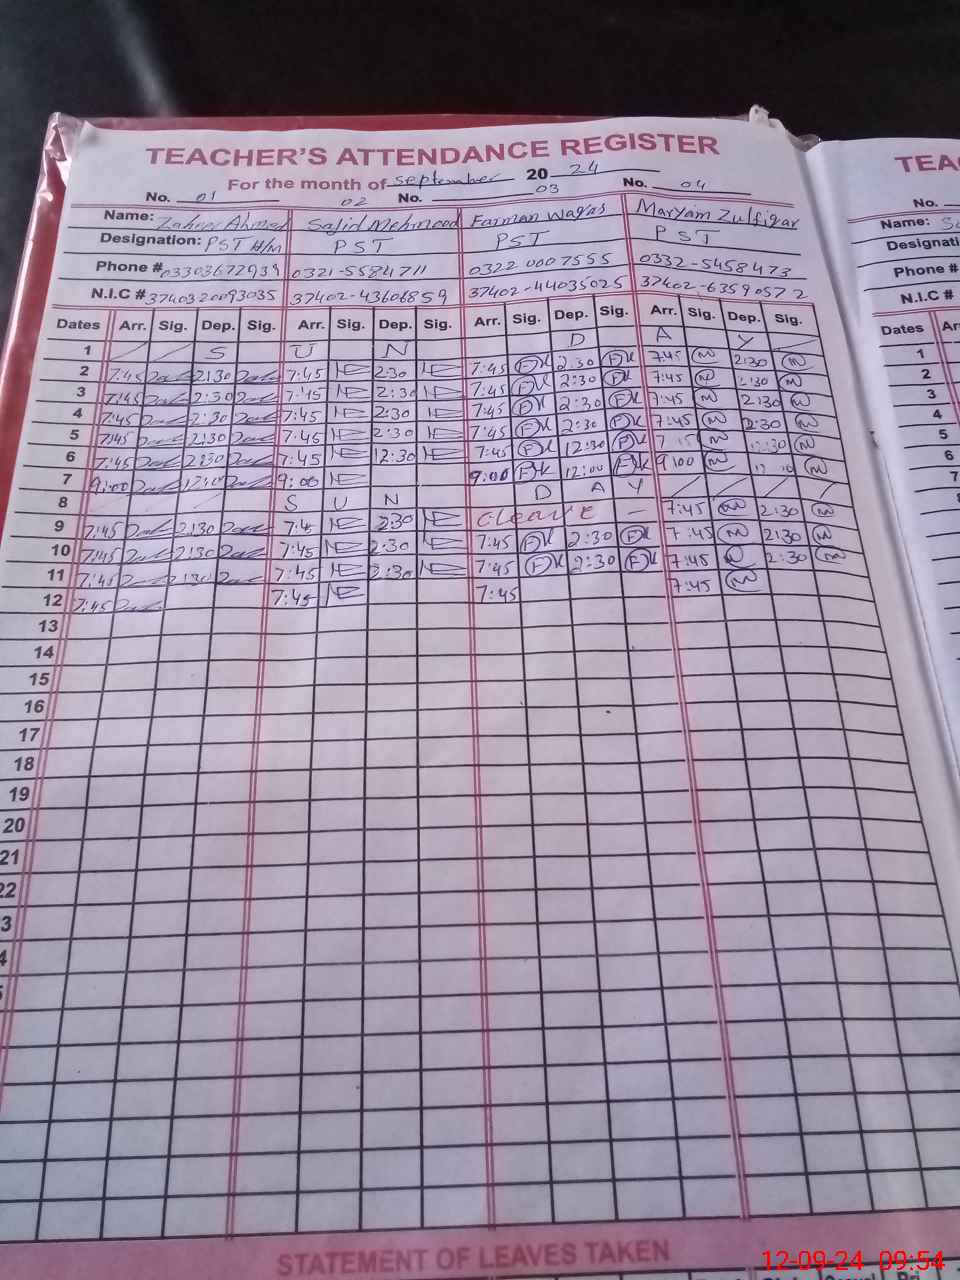 TEACHER'S ATTENDANCE REGISTER
For the month of September 20 24
No. 01 02 No. 03 No. 04
Name: Zaheer Ahmed Sajid Mehmood Farman Waqas Maryam Zulfiqar
Designation: PST H/M PST PST PST
Phone # 03303672939 0321-5584711 0322 0007555 0332-5458473
N.I.C # 3740320093035 37402-43606859 37402-44035025 37402-63590572
Dates Arr. Sig. Dep. Sig. Arr. Sig. Dep. Sig. Arr. Sig. Dep. Sig. Arr. Sig. Dep. Sig.
1 S U N D A Y
2 7:45 2:30 7:45 2:30 7:45 2:30 7:45 2:30
3 7:45 2:30 7:45 2:30 7:45 2:30 7:45 2:30
4 7:45 2:30 7:45 2:30 7:45 2:30 7:45 2:30
5 7:45 2:30 7:45 2:30 7:45 2:30 7:45 2:30
6 7:45 7:45 12:30 7:45 12:30
7 9:00 9:00 9:00 12:00 9:00
8 S U N D A Y
9 7:45 2:30 7:45 2:30 C leave - 7:45 2:30
10 7:45 2:30 7:45 2:30 7:45 2:30 7:45 2:30
11 7:45 2:30 7:45 2:30 7:45 2:30 7:45 2:30
12 7:45 7:45 7:45 7:45
13
14
15
16
17
18
19
20
21
22
3
4
STATEMENT OF LEAVES TAKEN
TEA
No.
Name:
Designati
Phone #
N.I.C #
Dates
1
2
3
4
5
6
7
8
9
10
11
12
13
14
15
16
17
12-09-24 09:54